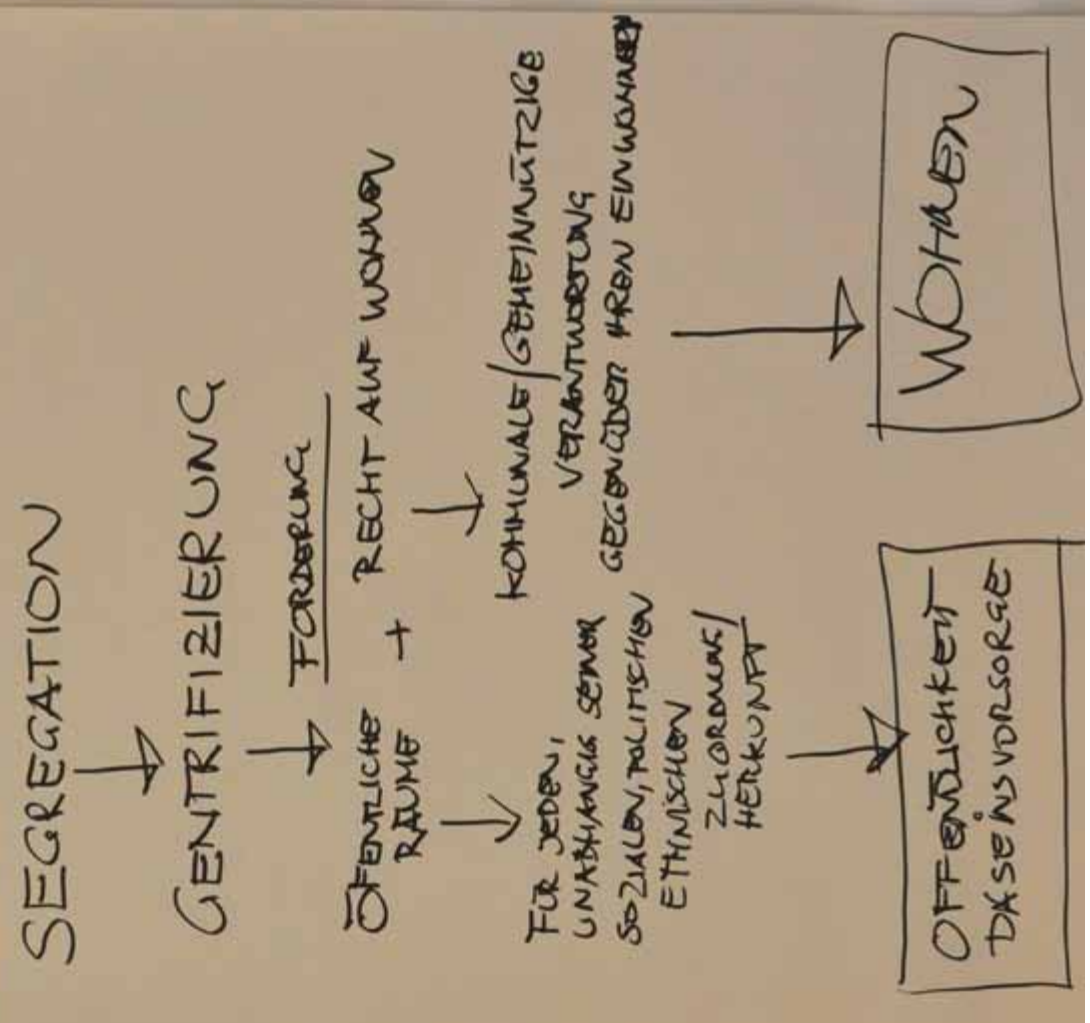 SEGREGATION
GENTRIFIZIERUNG
FORDERUNG
ÖFENTLICHE
RÄUME
+
RECHT AUF WOHNEN
FÜR JEDEN,
UNABHÄNGIG SEINER
SOZIALEN, POLITISCHEN
ETHNISCHEN
ZUORDNUNG/
HERKUNFT
KOMMUNALE/GEMEINNÜTZIGE
VERANTWORTUNG
GEGENÜBER IHREN EINWOHNERN
OFFENTLICHKEIT
DASEINSVORSORGE
WOHNEN